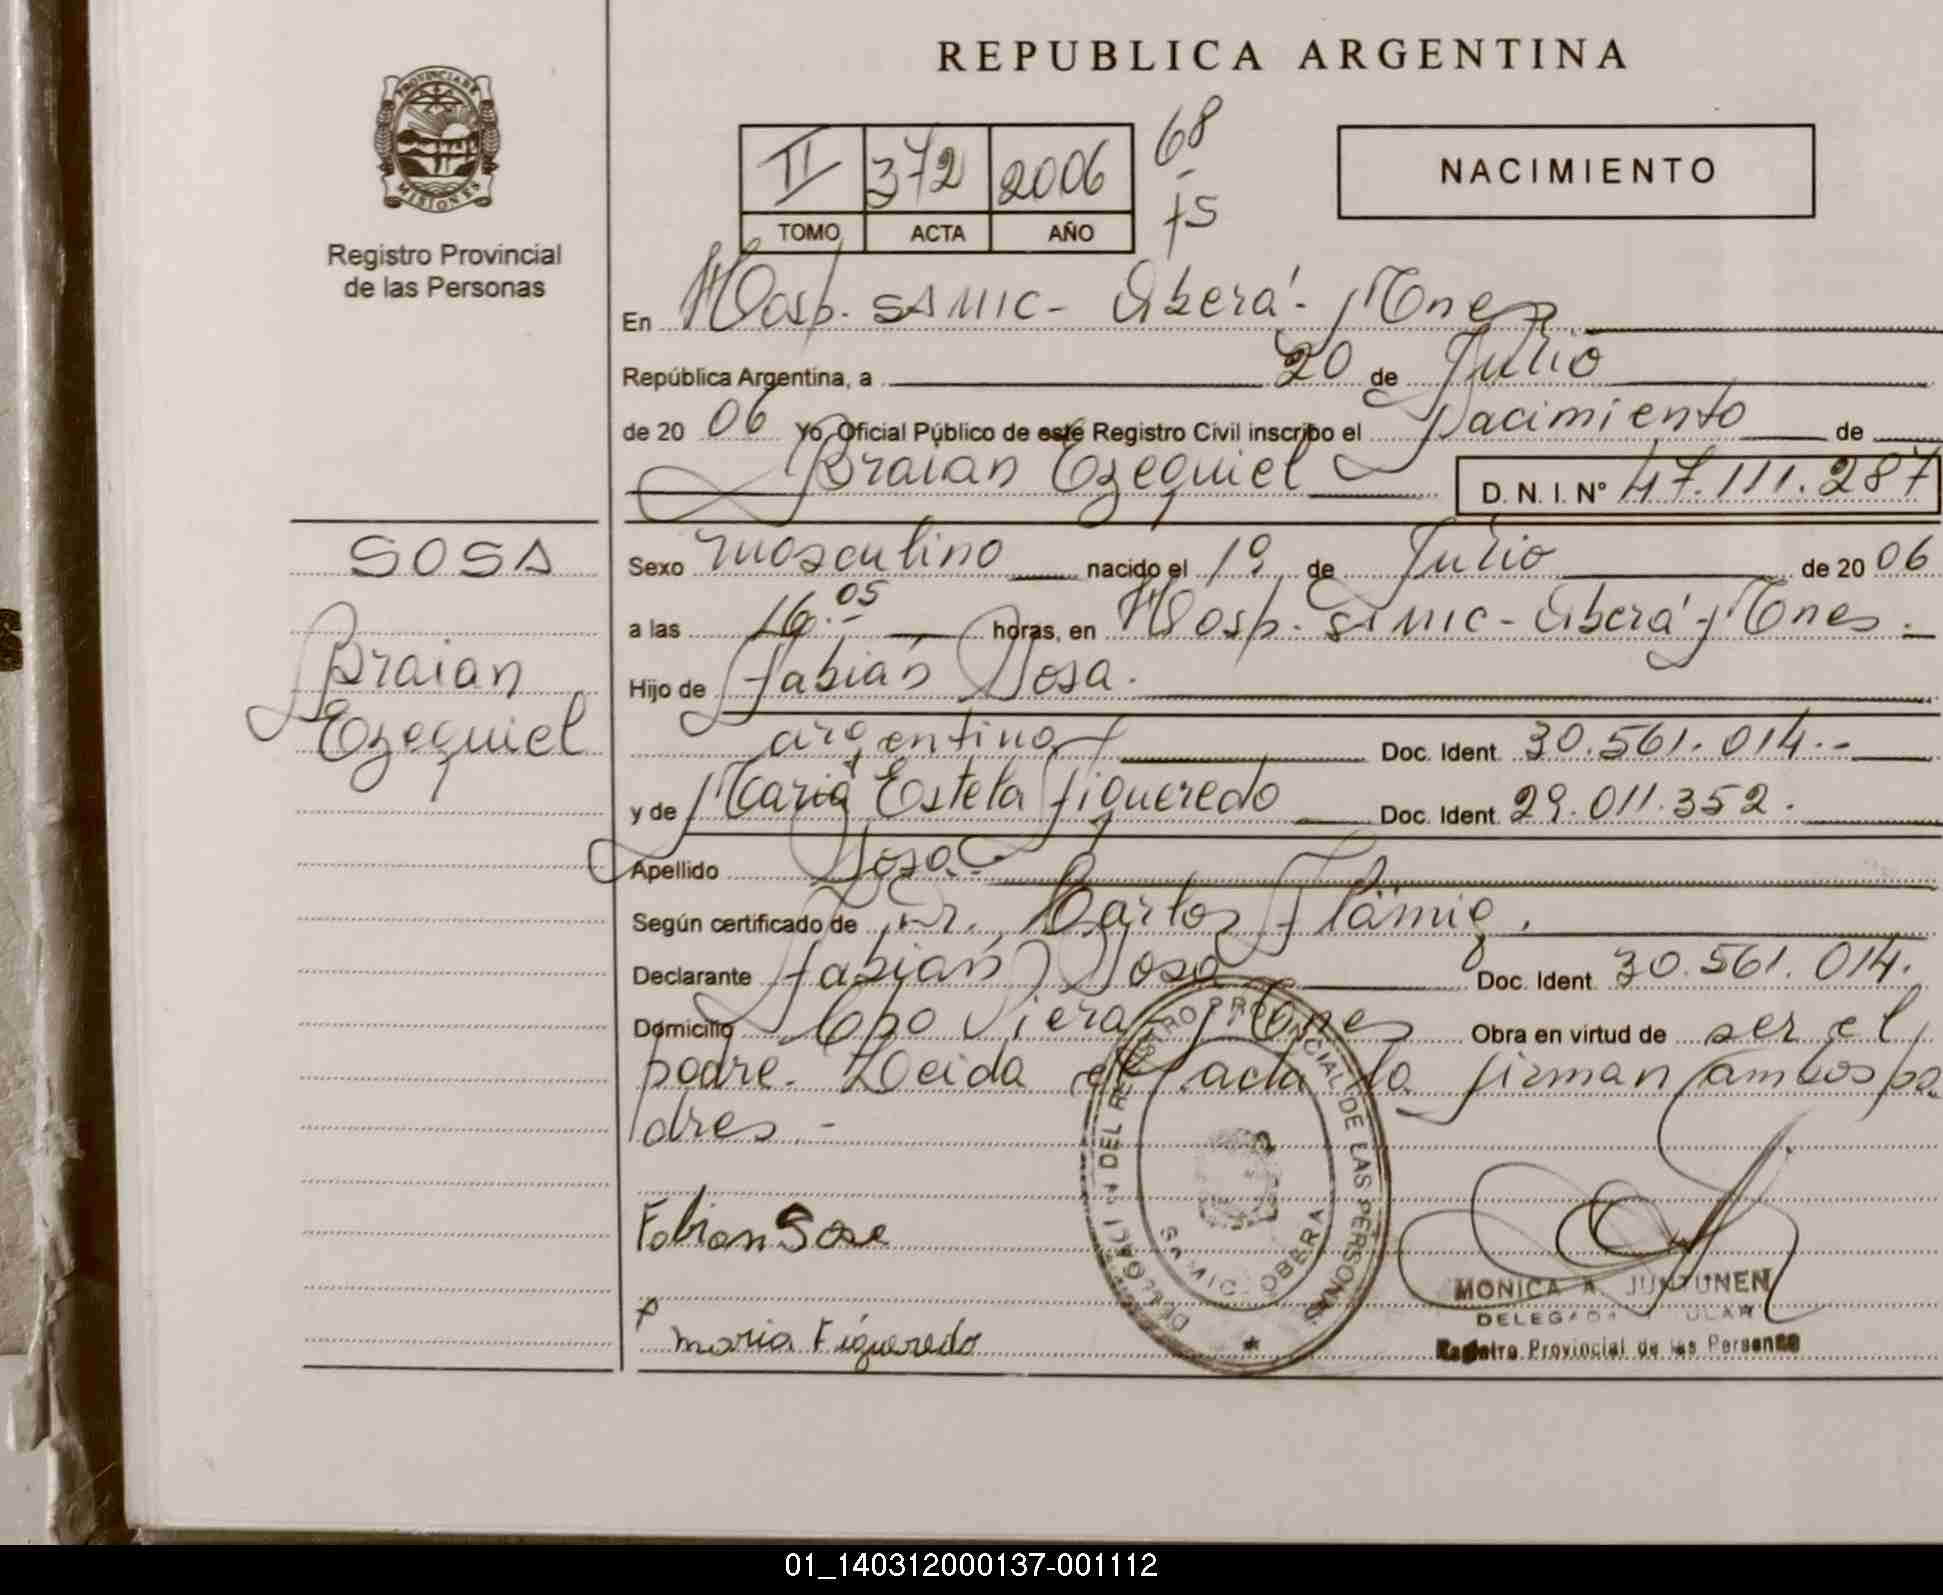 REPUBLICA ARGENTINA
PROVINCIA DE
MISIONES
Registro Provincial
de las Personas
II 372 2006 68
TOMO ACTA AÑO 75
NACIMIENTO
En Hosp. SAMIC - Oberá - Mnes
República Argentina, a 20 de Julio
de 20 06 Yo, Oficial Público de este Registro Civil inscribo el Nacimiento de
Braian Ezequiel D. N. I. Nº 47.111.287
SOSA
Braian
Ezequiel
Sexo masculino nacido el 19 de Julio de 20 06
a las 16.05 horas, en Hosp. SAMIC - Oberá - Mnes.
Hijo de Fabián Sosa.
argentino Doc. Ident. 30.561.014.-
y de María Estela Figueredo Doc. Ident. 29.011.352.
Apellido Sosa.
Según certificado de Dr. Carlos Flämig.
Declarante Fabián Sosa Doc. Ident. 30.561.014.
Domicilio Cpo Viera - Mnes Obra en virtud de ser el
padre. Leida el acta la firman ambos pa
dres.-
Fabian Sosa
maria Figueredo
DEL REGISTRO PROVINCIAL DE LAS PERSONAS
SAMIC OBERA
MONICA A. JUNTUNEN
Registro Provincial de las Personas
01_140312000137-001112